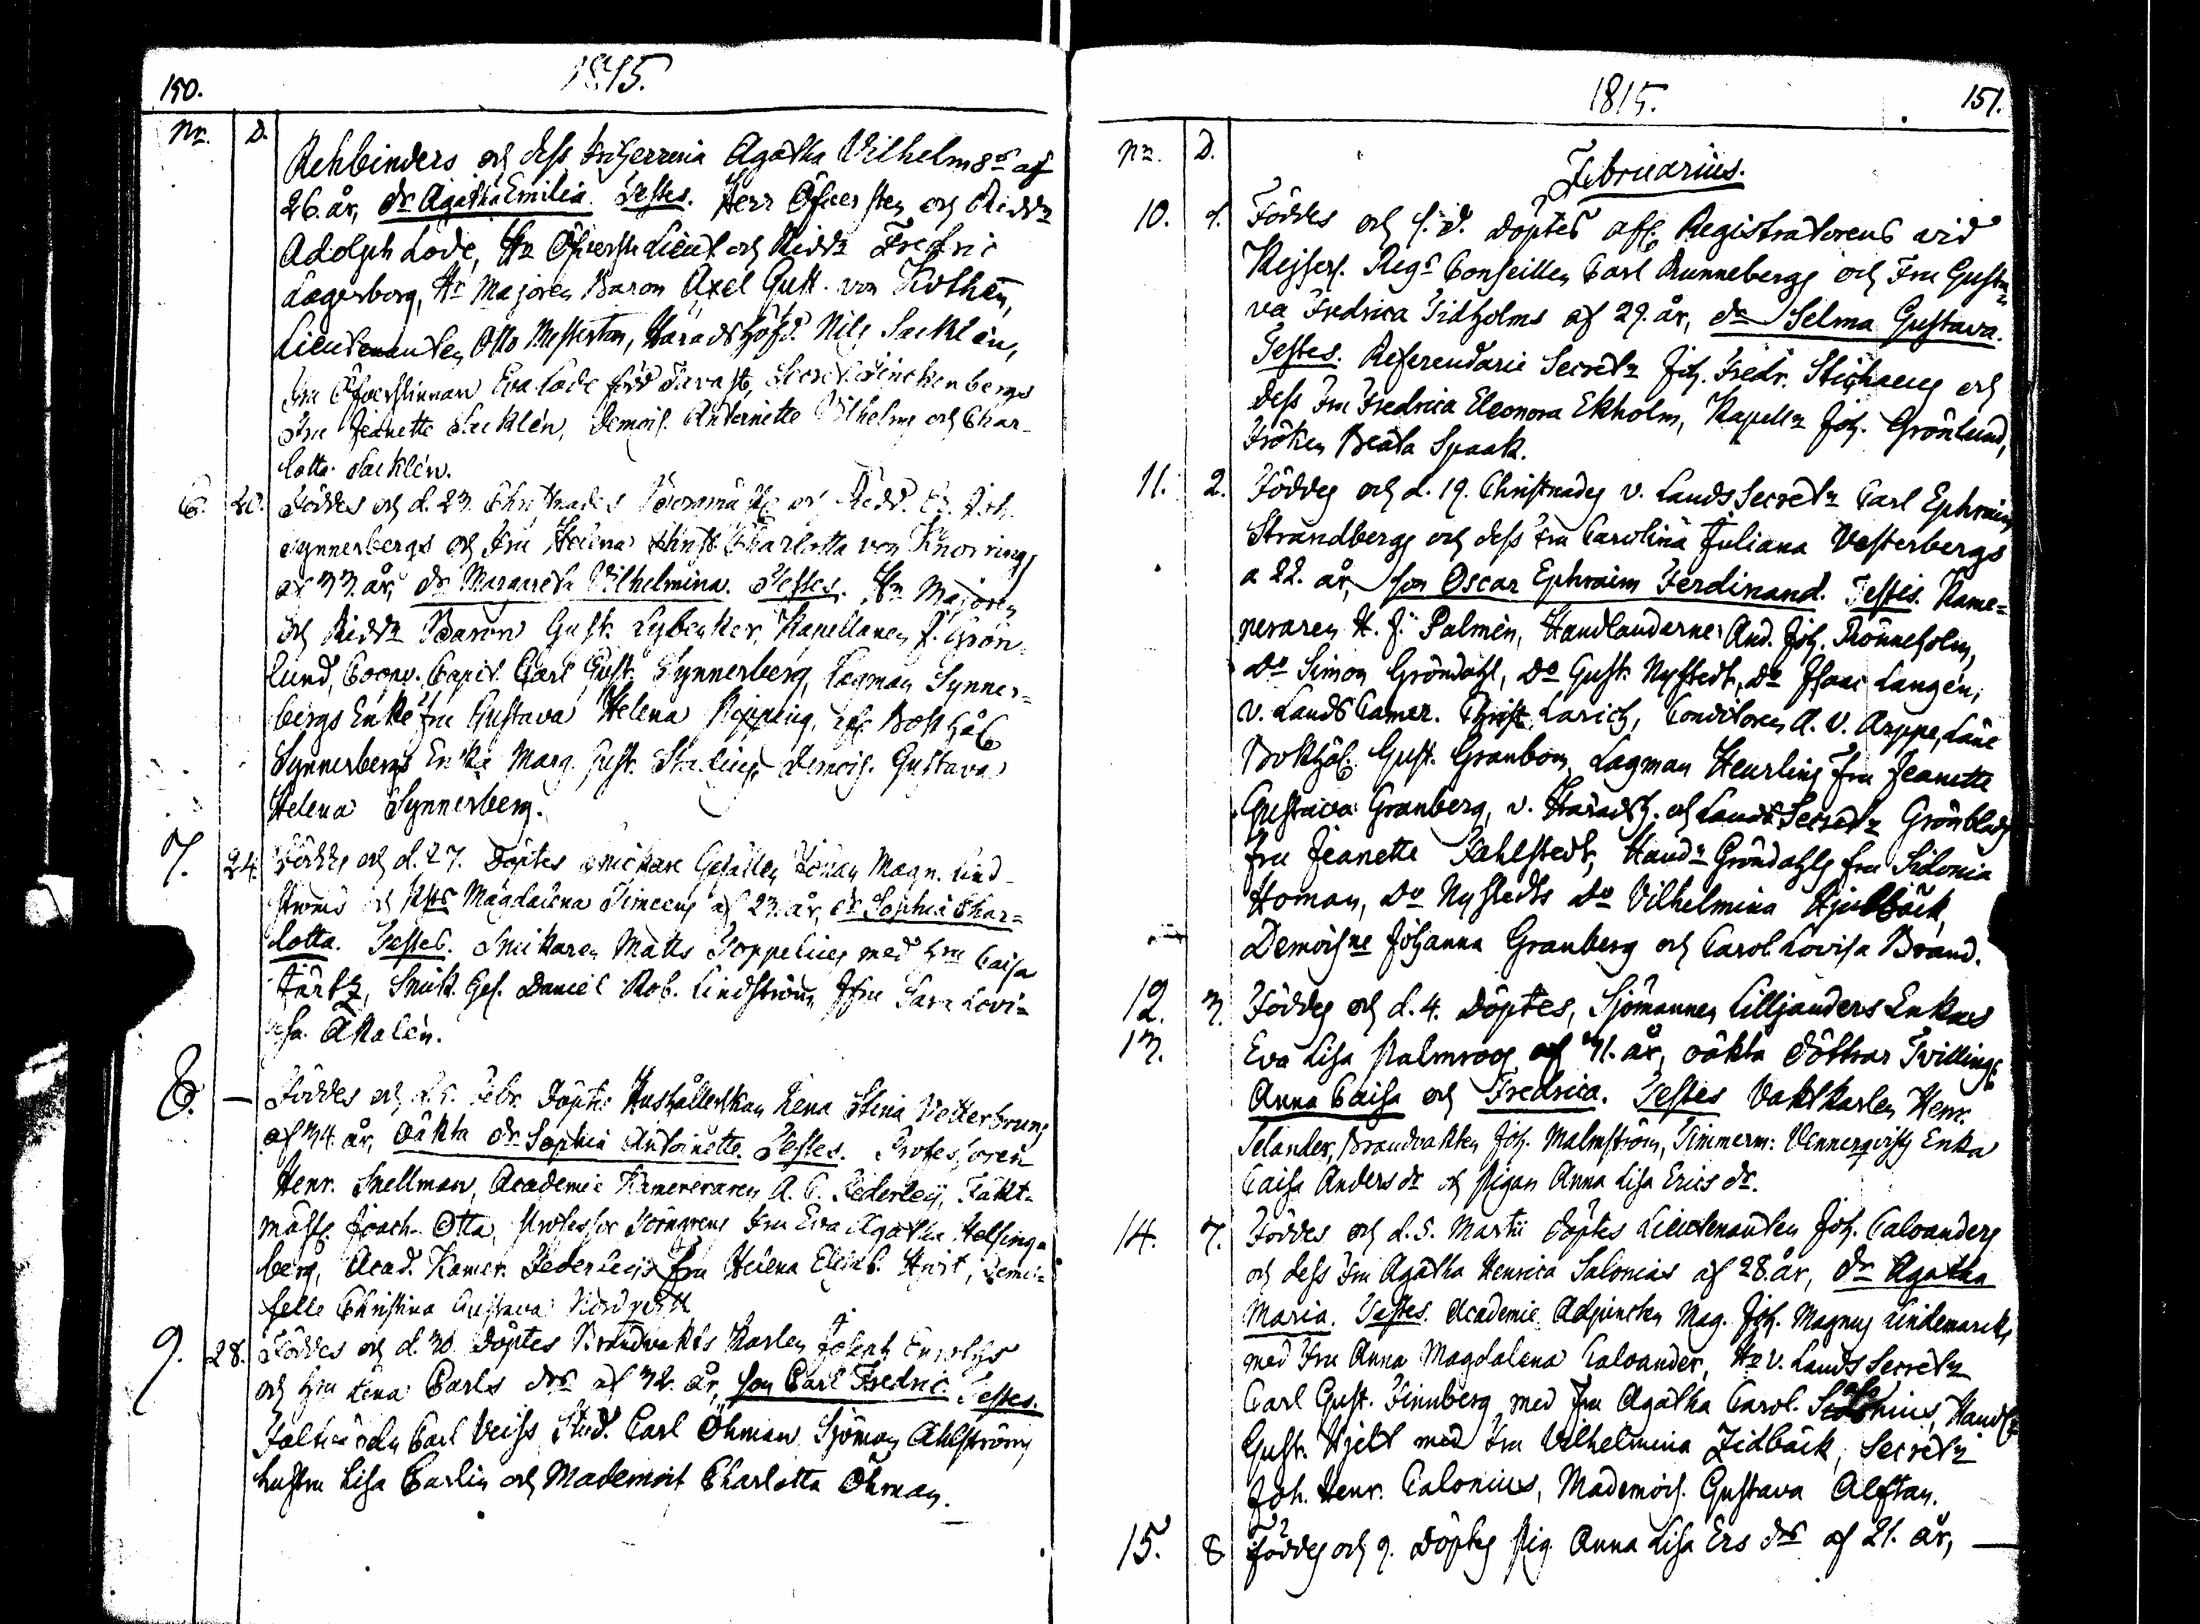 150.
1815.
Nr. D.
Rehbinders och dess Friherrinna Agatha Vilhelms af
26. år, dr Agatha Emilia. Testes. Herr Öfversten och Riddr
Adolph Lode, Hr Öfverste Lieut och Riddr Fredric
Lagerborg, Hr Majoren Baron Axel Gust. von Kothen,
Lieutenanten Otto Mesterton, Häradshöfd. Nils Sacklén,
Fru Öfverstinnan Eva Lode född Tavast, Secret.
Fru Jeanette Sacklén, Demois. Antoinette Vilhelms och Char-
lotta Sacklén.
6. 20. Föddes och d. 23. Christnades
Synnerbergs och Fru Helena Charlotta von Knorrings
af 33. år, dr Margareta Vilhelmina. Testes. Hr Majoren
och Riddr Baron Gust. Lybecker, Kapellanen J. Grön-
lund, Coopv. Capit. Carl Gust. Synnerberg, Lagman Synner-
bergs Enkefru Gustava Helena Bokhål
Synnerbergs Enka Marg. Gust. Demois. Gustava
Helena Synnerberg.
7. 24. Föddes och d. 27. Döptes Snickare Gesällen Johan Magn. Lind-
ströms och Hustr Magdalena Simeens af 23. år, dr Sophia Char-
lotta. Testes. Snickaren Matts Toppelius med Hru Caisa
Snick. Ges. Daniel Rob. Lindström, Jfru Sara Lovi-
sa Akalén.
8. — Föddes och d. 5. Febr. Döptes Hushållerskan Lena Stina Vetterbruns
af 34. år, oäkta dr Sophia Antoinette. Testes. Professoren
Henr. Snellman, Academie Kamereraren A. C. Federley, Fäkt-
mäst. Joach. Otta, Professor Törngrens Fru Eva Agatha Helsing-
berg, Acad. Kamer. Federleys Fru Helena Elisab. Demoi-
selle Christina Gustava
9. 28. Föddes och d. 30. Döptes Brandvakts Karlen
och Hru Lena Carls drs af 32. år, son Carl Fredric. Testes.
Carl Veiss Stud. Carl Öhman Sjöman Ahlström,
hustru Lisa Carlin och Mademois Charlotta Öhman.
1815.
151.
Nr. D.
Februarius.
10. 1. Föddes och s. d. döptes aff. Registratorens vid
Kejserl. Regs Conseillen Carl Runnebergs och Fru Gusta-
va Fredrica Tidholms af 29. år, dr Selma Gustava.
Testes. Referendarie Secretr Joh. Fredr. Stichaeus och
dess Fru Fredrica Eleonora Ekholm, Kapellr Joh. Grönlund,
Fröken Beata Spaak.
11. 2. Föddes och d. 19. Christnades v. Lands Secretr Carl Ephraim
Strandbergs och dess Fru Carolina Juliana Vesterbergs
a 22. år, son Oscar Ephraim Ferdinand. Testis. Kame-
reraren H. J. Palmén, Handlandarne And. Joh. Rönneholm,
Do Simon Gröndahl, Do Gust. Nystedt, Do Isaac Langén,
v. Lands Camer. Christ. Larich, Conditoren A. V. Arppe, Läne
Bokhål. Gust. Granbom, Lagman Heurlins Fru Jeanette
Gustava Granberg, v. Häradsh. och Lands Secretr Grönblads
fru Jeanette Fahlstedt, Handr Gröndahls fru Sidonia
Homan, Do Nystedts Do Vilhelmina
Demoislne Johanna Granberg och Carol. Lovisa Brand.
12. 3. Föddes och d. 4. Döptes, Sjömannen Lilljanders Enkas
13. Eva Lisa Palmroos af 41. år, oäkta döttrar Tvillings
Anna Caisa och Fredrica. Testes Vaktkarlen Henr.
Selander, Brandvakten Joh. Malmström, Timmerm: Vennerqvists Enka
Caisa Anders dr och Pigan Anna Lisa Erics dr.
14. 7. Föddes och d. 5. Martii Döptes Lieutenanten Joh. Caloanders
och dess Fru Agatha Henrica Salonias af 28. år, dr Agatha
Maria. Testes. Academie Adjuncten Mag. Joh. Magnus Lindemarck,
med Fru Anna Magdalena Caloander, Hr v. Lands Secretr
Carl Gust. Finnberg med Fru Agatha Carol. Salonius, Handlr
Gust. Hjelt med Fru Vilhelmina Zidbäck, Secretr
Joh. Henr. Calonius, Mademois. Gustava Alftan.
15. 8 Föddes och 9. Döptes Pig. Anna Lisa Ers drs af 21. år, —